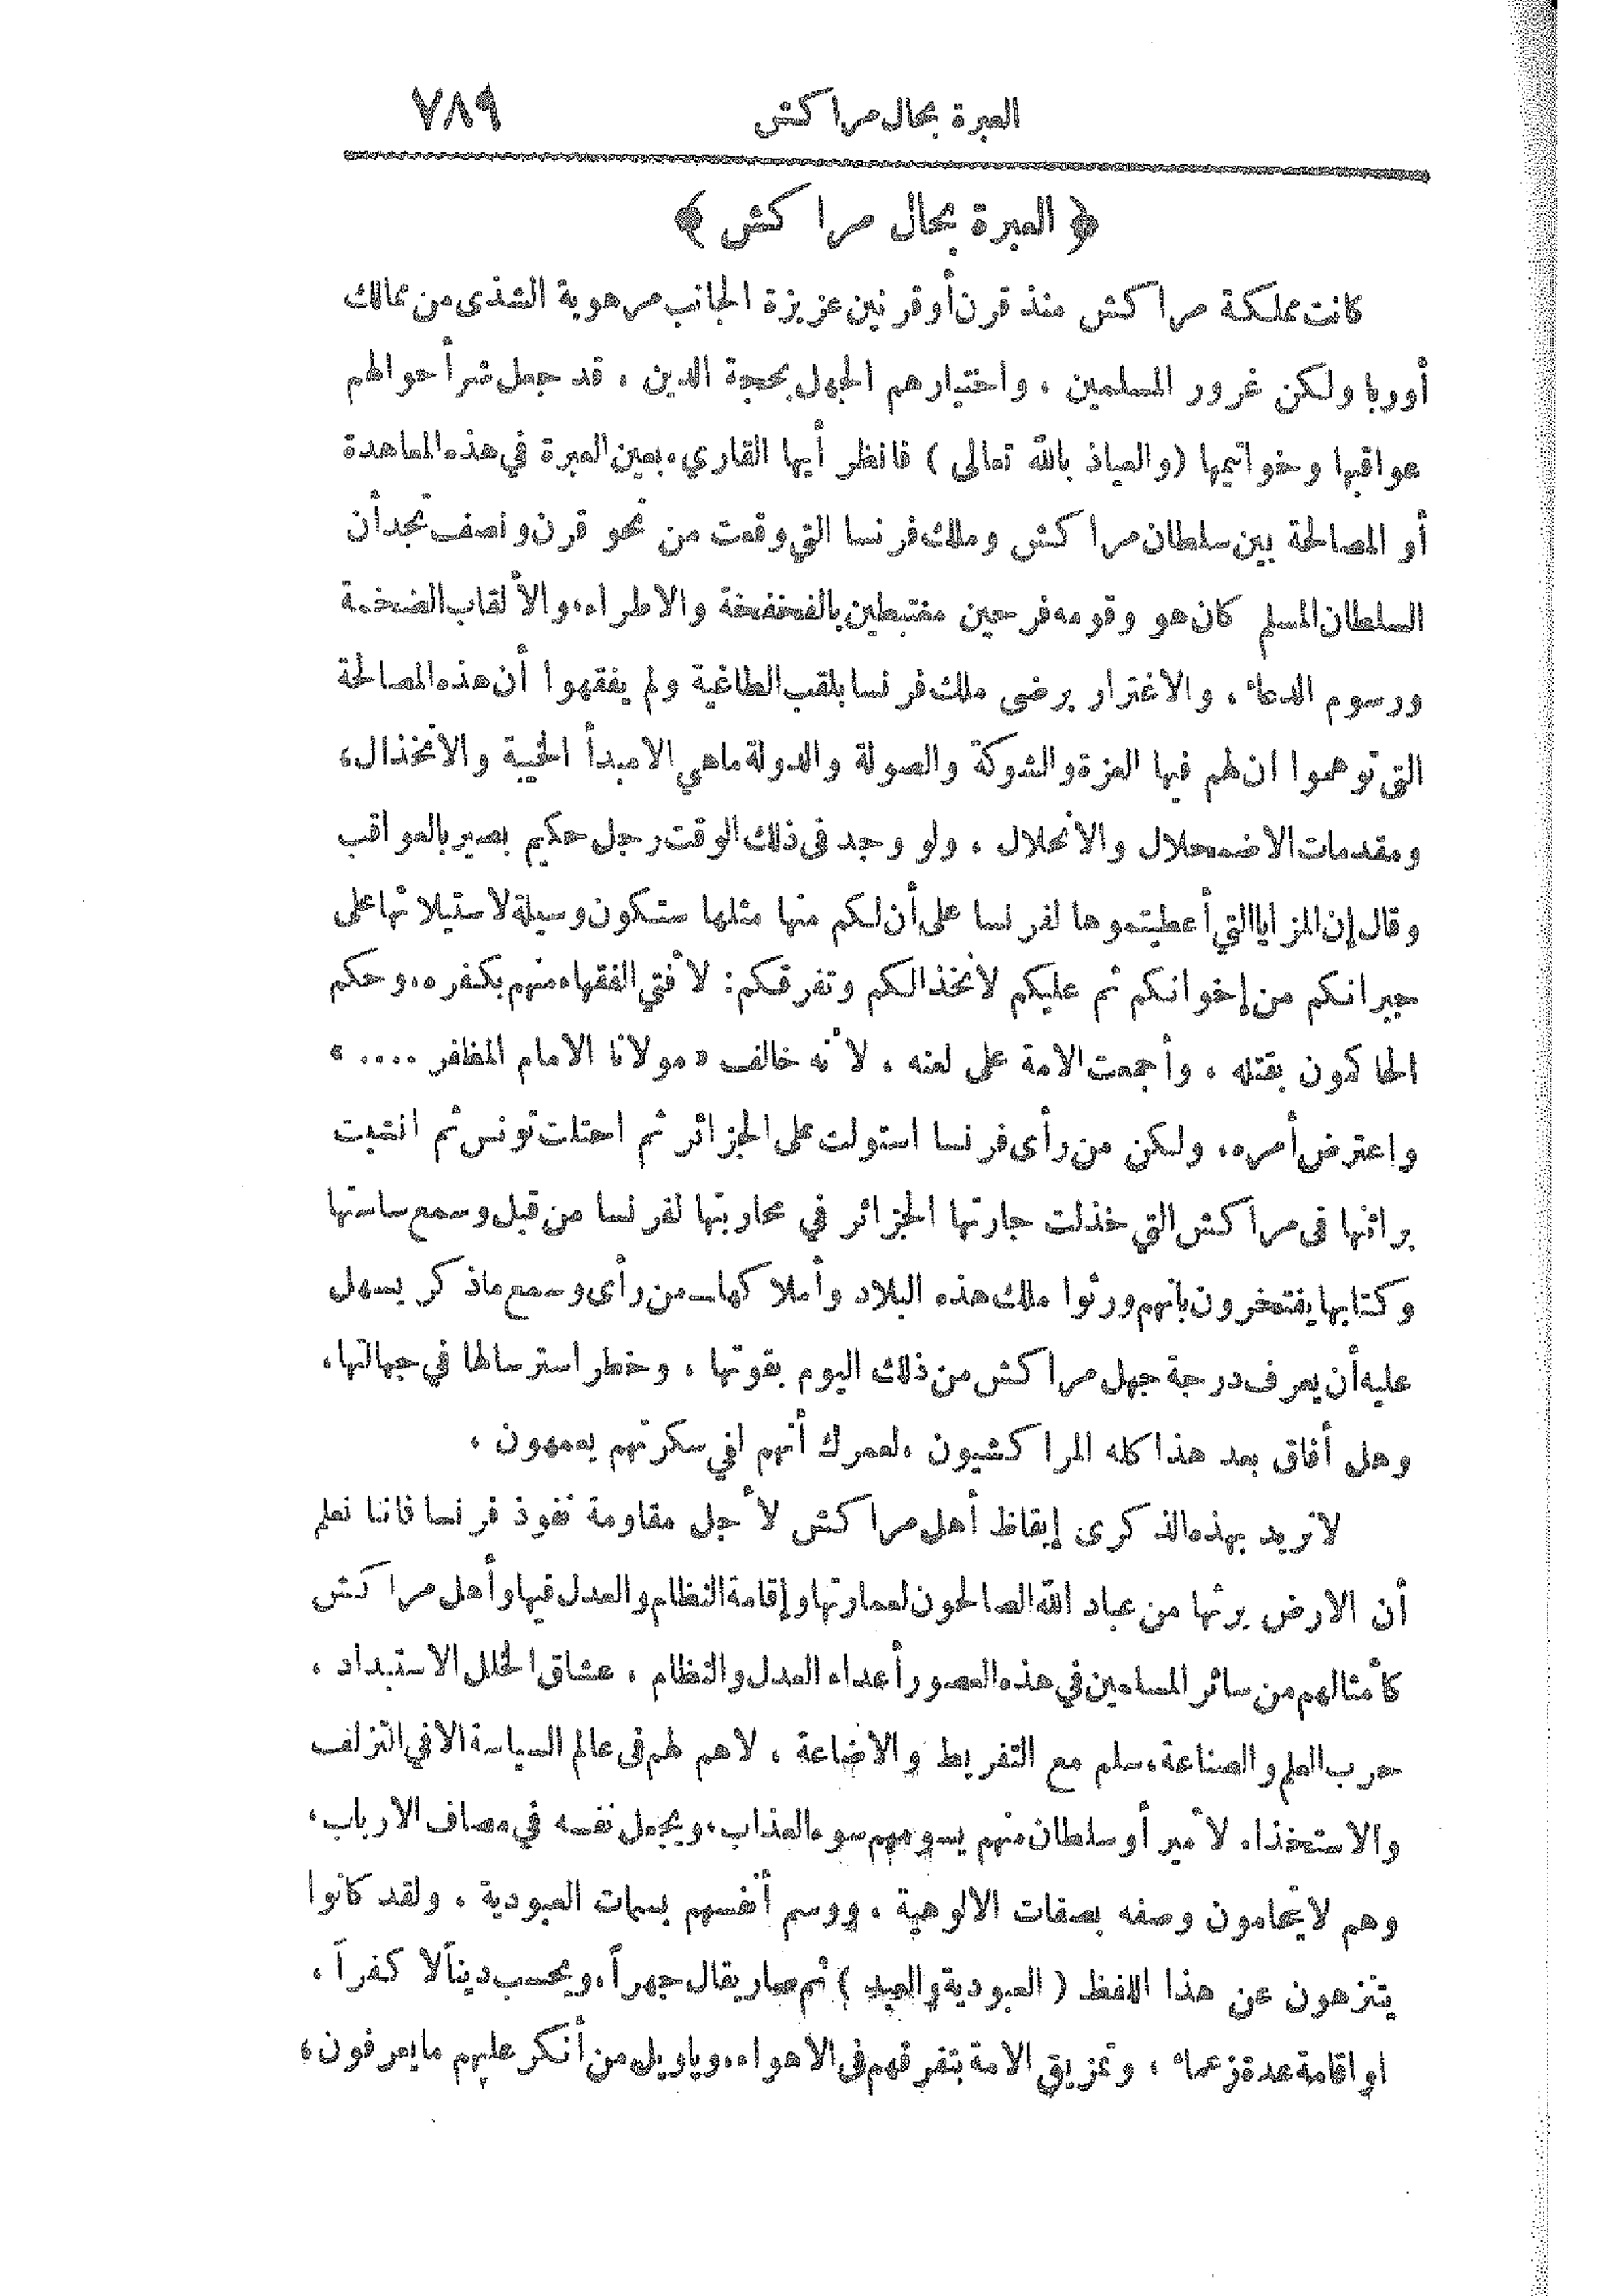 العبرة بحال مراكش
٧٨٩
﴿ العبرة بحال مراكش ﴾
كانت مملكة مراكش منذ قرن أو قرنين عزيزة الجانب مرهوبة الشذى من ممالك
أوربا ولكن غرور المسلمين ، واختيارهم الجهل بحجة الدين ، قد جعل شر أحوالهم
عواقبها وخواتيمها (والعياذ بالله تعالى ) فانظر أيها القاريء بعين العبرة في هذه المعاهدة
أو المصالحة بين سلطان مراكش وملك فرنسا التي وقعت من نحو قرن ونصف تجد أن
السلطان المسلم كان هو وقومه فرحين مغتبطين بالفخفخة والاطراء، والألقاب الضخمة
ورسوم الدعاء ، والاغترار برضى ملك فرنسا بلقب الطاغية ولم يفقهوا أن هذه المصالحة
التى توهموا ان لهم فيها العزة والشوكة والصولة والدولة ماهي الا مبدأ الخيبة والانخذال،
ومقدمات الاضمحلال والانحلال ، ولو وجد فى ذلك الوقت رجل حكيم بصير بالعواقب
وقال إن المزايا التي أعطيتموها لفرنسا على أن لكم منها مثلها ستكون وسيلة لاستيلائها على
جيرانكم من إخوانكم ثم عليكم لانخذالكم وتفرقكم : لأفتى الفقهاء منهم بكفره، وحكم
الحاكمون بقتله ، وأجمعت الامة على لعنه ، لأنه خالف « مولانا الامام المظفر .... »
واعترض أمره، ولكن من رأى فرنسا استولت على الجزائر ثم احتلت تونس ثم انشبت
براثنها فى مراكش التي خذلت جارتها الجزائر في محاربتها لفرنسا من قبل وسمع ساستها
وكتابها يفتخرون بانهم ورثوا ملك هذه البلاد وأملاكها ــ من رأى وسمع ماذكر يسهل
عليه أن يعرف درجة جهل مراكش من ذلك اليوم بقوتها ، وخطر استرسالها في جهالتها،
وهل أفاق بعد هذا كله المراكشيون ، لعمرك أنهم لفي سكرتهم يعمهون ،
لانريد بهذه الذكرى إيقاظ أهل مراكش لأجل مقاومة نفوذ فرنسا فاننا نعلم
أن الارض يرثها من عباد الله الصالحون لعمارتها وإقامة النظام والعدل فيها وأهل مراكش
كأمثالهم من سائر المسلمين في هذه العصور أعداء العدل والنظام ، عشاق الخلل الاستبداد ،
حرب العلم والصناعة، سلم مع التفريط والاضاعة ، لاهم لهم فى عالم السياسة الا في التزلف
والاستخذاء لأمير أو سلطان منهم يسومهم سوء العذاب، ويجعل نفسه في مصاف الارباب،
وهم لايتحامون وصفه بصفات الالوهية ، ووسم أنفسهم بسمات العبودية ، ولقد كانوا
يتنزهون عن هذا اللفظ ( العبودية والعبد ) ثم صار يقال جهراً، ويحسب ديناً لا كفراً ،
او اقامة عدة زعماء ، وتمزيق الامة بتفرقهم فى الاهواء، وياويل من أنكر عليهم مايعرفون،